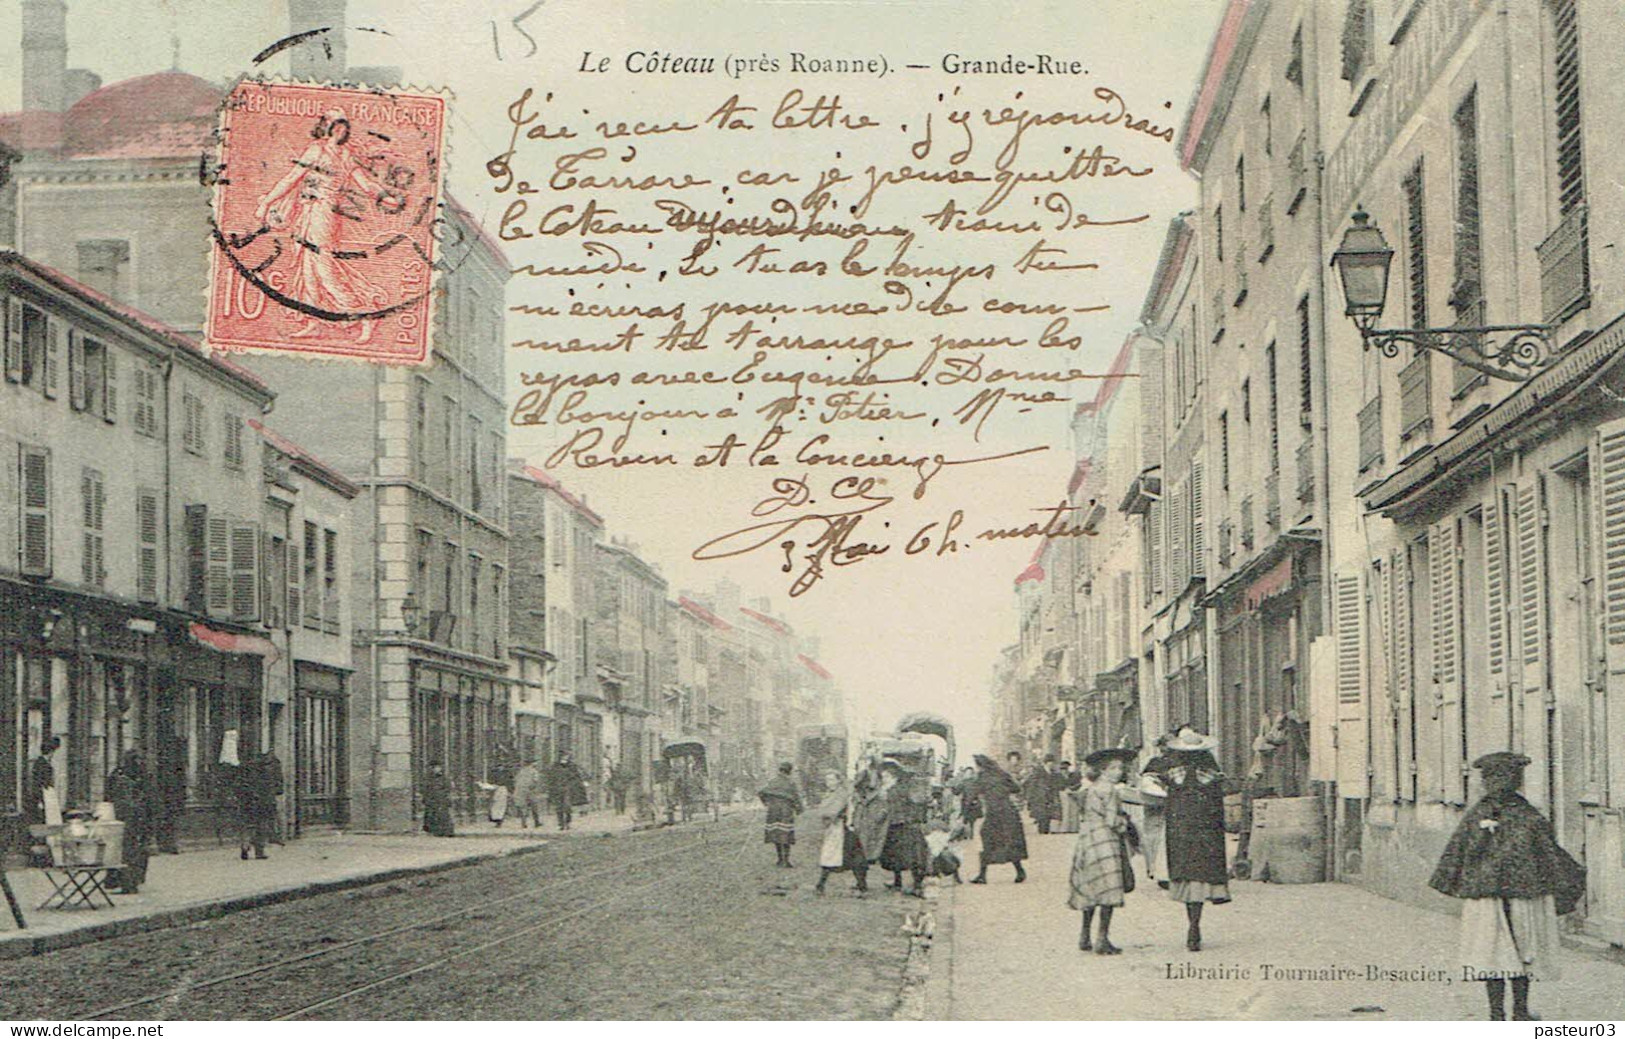 15
Le Côteau (près Roanne). — Grande-Rue.
RÉPUBLIQUE FRANÇAISE
10 c
POSTES
3
MAI
06
J'ai recu ta lettre, j'y répondrais
de Tarrare, car je pense quitter
le Coteau aujourd'hui au train de
midi, Si tu as le temps tu
m'écriras pour me dire com-
ment tu t'arrange pour les
repas avec Eugénie. Donne
le bonjour à Mr. Potier, Mme
Revin et la Concierge
D. Cl
3 Mai 6 h. matin
Librairie Tournaire-Besacier, Roanne.
pasteur03